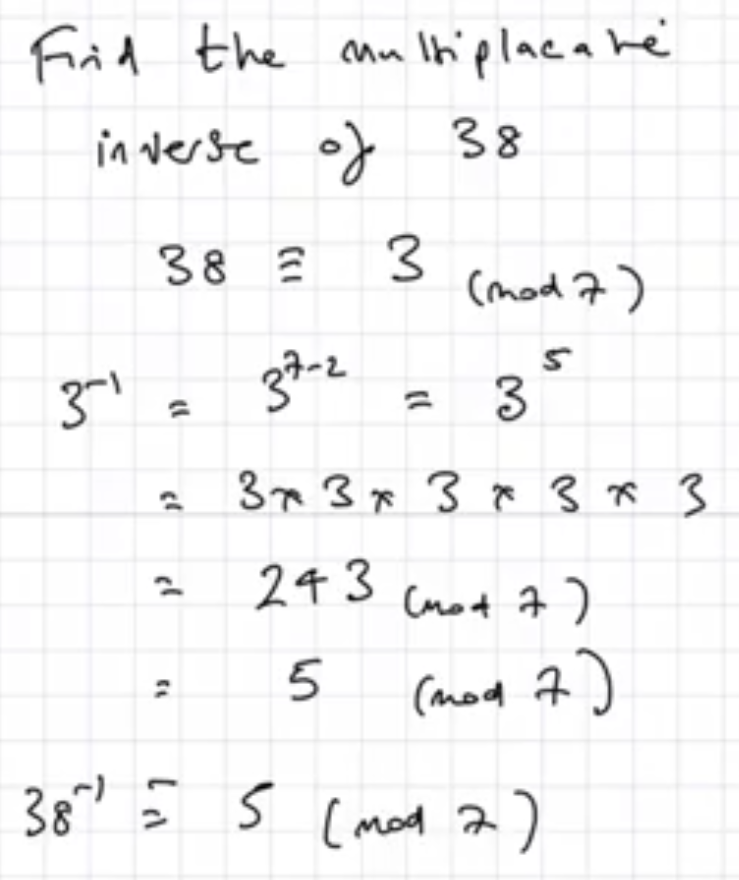 Find the multiplacative
inverse of 38
38 ≡ 3 (mod 7)
3⁻¹ = 3⁷⁻² = 3⁵
= 3 × 3 × 3 × 3 × 3
= 243 (mod 7)
= 5 (mod 7)
38⁻¹ ≡ 5 (mod 7)